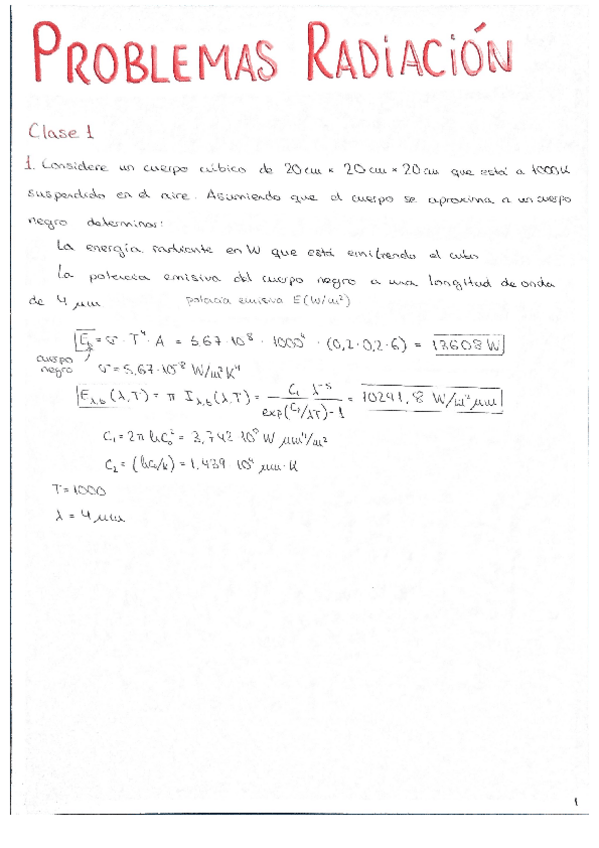 PROBLEMAS RADIACIÓN
Clase 1
1. Considere un cuerpo cúbico de 20 cm × 20 cm × 20 cm que está a 1000 K
suspendido en el aire. Asumiendo que el cuerpo se aproxima a un cuerpo
negro determinar:
La energía radiante en W que está emitiendo el cubo
La potencia emisiva del cuerpo negro a una longitud de onda
de 4 μm potencia emisiva E (W/m²)
E_b = σ · T⁴ · A = 5,67 · 10⁸ · 1000⁴ · (0,2 · 0,2 · 6) = 13608 W
cuerpo
negro σ = 5,67 · 10⁻⁸ W/m²K⁴
E_λ,b (λ,T) = π I_λ,b (λ,T) = C₁ λ⁻⁵ / exp(C₂/λT) - 1 = 10291,8 W/m² μm
C₁ = 2π h C₀² = 3,742 · 10⁸ W μm⁴/m²
C₂ = (hC₀/k) = 1,439 · 10⁴ μm · K
T = 1000
λ = 4 μm
1